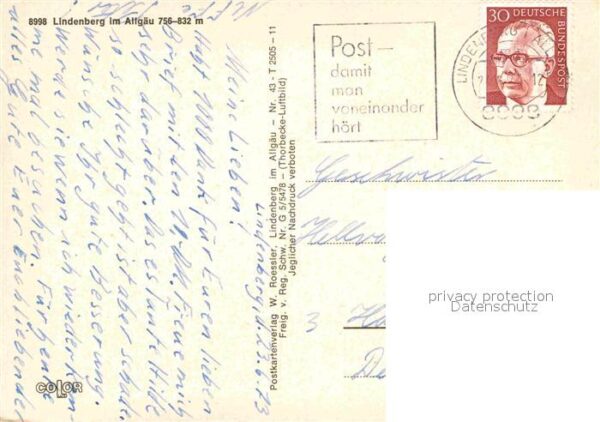 8998 Lindenberg im Allgäu 756–832 m
Lindenberg, d. 23.6.73
Meine Lieben!
Hab Dank für Euren lieben
Brief mit den 10.- M. Freue mich
sehr darüber. das es Tante Hilde
so schlecht geht ist aber schade.
Wünsche Ihr gute Besserung.
Werde sie wenn ich wieder kom-
me mal besuchen. Für heute
alles Gute Eure Euch liebender
COLOR
Postkartenverlag W. Roessler, Lindenberg im Allgäu – Nr. 43 - T 2505 – 11
Freig. v. Reg. Schw. Nr. G 5/5478 – (Thorbecke-Luftbild)
Jeglicher Nachdruck verboten
Post –
damit
man
voneinander
hört
LINDENBERG
30 DEUTSCHE
BUNDESPOST
Geschwister
3
privacy protection
Datenschutz